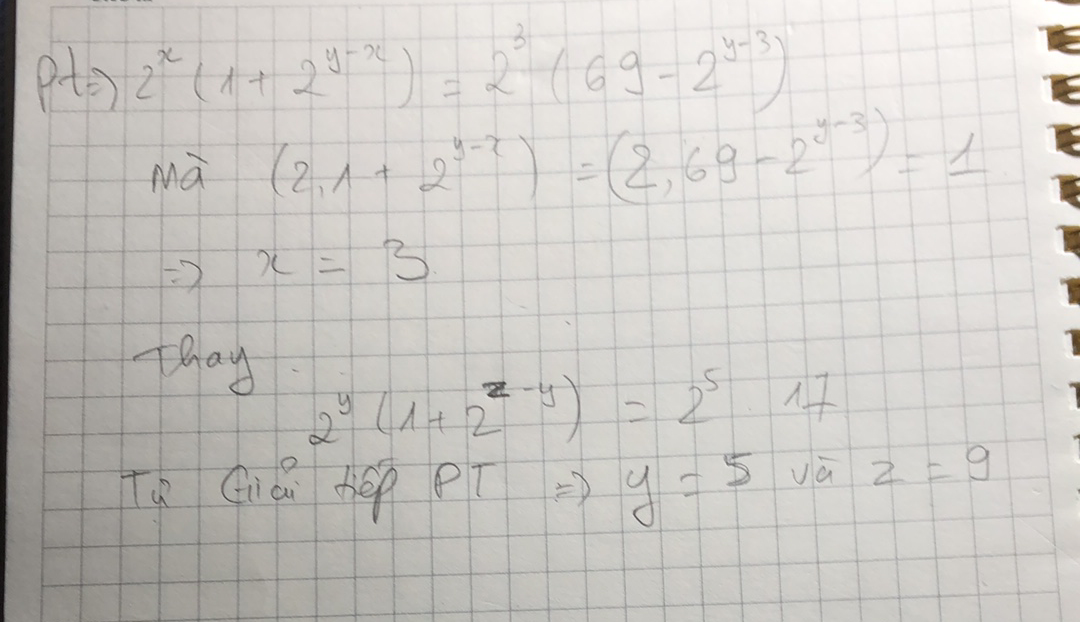 Pt => 2^x (1 + 2^{y-x}) = 2^3 (69 - 2^{y-3})
Mà (2, 1 + 2^{y-x}) = (2, 69 - 2^{y-3}) = 1
=> x = 3
Thay
2^y (1 + 2^{z-y}) = 2^5 . 17
Tự Giải tiếp PT => y = 5 và z = 9